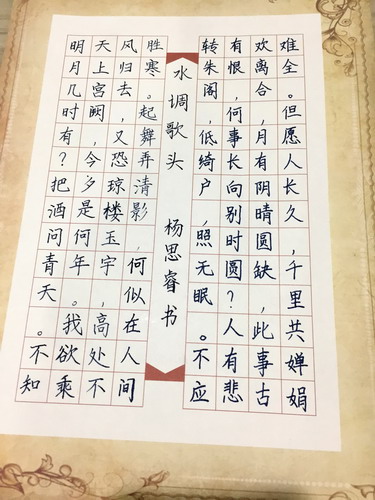 明月几时有？把酒问青天。不知
天上宫阙，今夕是何年。我欲乘
风归去，又恐琼楼玉宇，高处不
胜寒。起舞弄清影，何似在人间
水调歌头 杨思睿书
转朱阁，低绮户，照无眠。不应
有恨，何事长向别时圆？人有悲
欢离合，月有阴晴圆缺，此事古
难全。但愿人长久，千里共婵娟